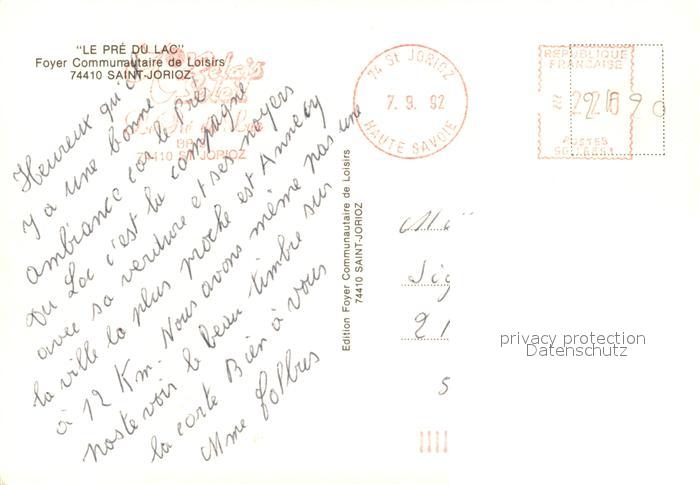 "LE PRÉ DU LAC"
Foyer Communautaire de Loisirs
74410 SAINT-JORIOZ
74410 ST JORIOZ
74 St JORIOZ
7. 9. 92
HAUTE SAVOIE
REPUBLIQUE
FRANCAISE
POSTES
Heureux qu'il
y a une bonne
ambiance car le Pré
Du Lac c'est la campagne
avec sa verdure et ses noyers
la ville la plus proche est Annecy
à 12 Km. Nous avons même pas une
poste voir le beau timbre sur
la carte Bien à vous
Mme
Edition Foyer Communautaire de Loisirs
74410 SAINT-JORIOZ
21
5
privacy protection
Datenschutz